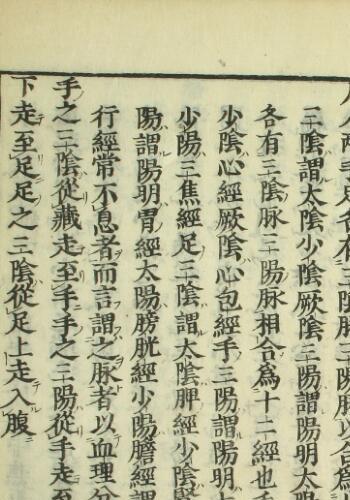 人兩手足各有三陰脉三陽脉以合爲
三陰謂太陰少陰厥陰三陽謂陽明太陽
各有三陰脉三陽脉相合爲十二經也
少陰心經厥陰心包經手三陽謂陽明大
少陽三焦經足三陰謂太陰脾經少陰腎
陽謂陽明胃經太陽膀胱經少陽膽經謂
行經常不息者而言謂之脉者以血理分
手之三陰從藏走至手手之三陽從手走至
下走至足足之三陰從足上走入腹